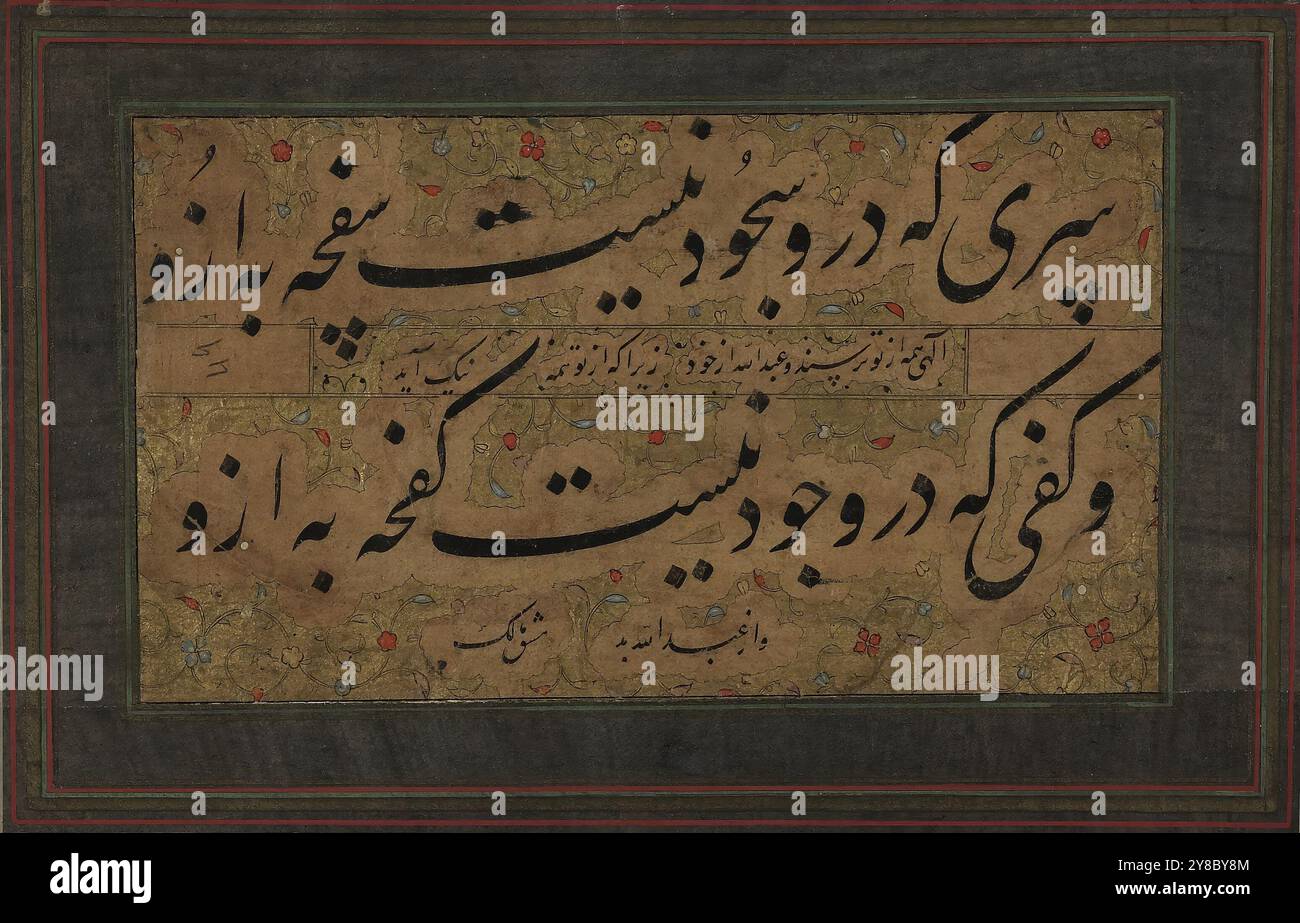 سری که درو سجود نیست سفچه به ازو
الهی همه از تو ترسند و عبدالله از خود زیرا که از تو همه نیک آید
و کفی که درو جود نیست کفچه به ازو
و از عبدالله بد مشقه مالک
alamy
alamy
alamy
alamy
alamy
alamy
Image ID: 2Y8BY8M
www.alamy.com